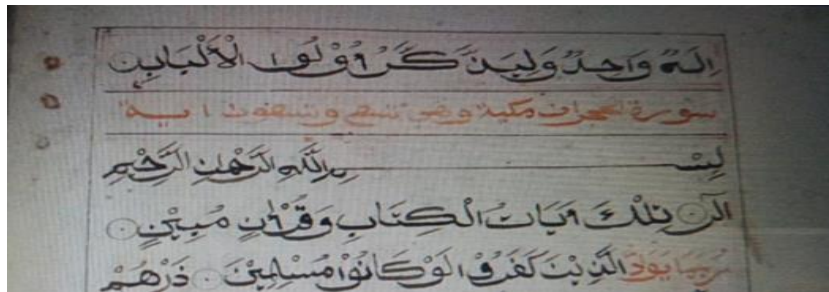 اِلَهٌ وَاحِدٌ وَلِيَذَّكَّرَ أُوْلُوا الْأَلْبَابِ
سورة الحجراف مكية وهي تسع وتسعون اية
بِسْمِ اللَّهِ الرَّحْمَٰنِ الرَّحِيمِ
الَر تِلْكَ ءَايَاتُ الْكِتَابِ وَقُرْءَانٍ مُبِيْنٍ
رُبَمَا يَوَدُّ الَّذِيْنَ كَفَرُوْا لَوْ كَانُوْا مُسْلِمِيْنَ ذَرْهُمْ